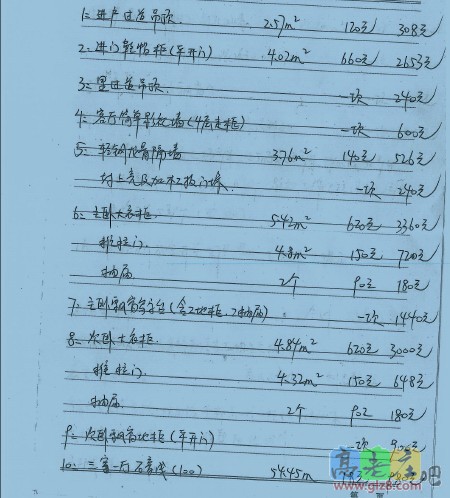 1、进户过道吊顶 2.57m² 120元 308元
2、进门鞋帽柜(平开门) 4.02m² 660元 2653元
3、里过道吊顶 一项 240元
4、客厅简单影视墙(4层走框) 一项 600元
5、轻钢龙骨隔墙 3.76m² 140元 526元
一项 240元
6、主卧大衣柜 5.42m² 620元 3360元
推拉门 4.8m² 150元 720元
抽屉 2个 90元 180元
7、主卧飘窗写字台(含2地柜,2抽屉) 一项 1440元
8、次卧大衣柜 4.84m² 620元 3000元
推拉门 4.32m² 150元 648元
抽屉 2个 90元 180元
9、次卧飘窗地柜(平开门) 一项
10、三室一厅石膏线(100) 54.45m
高老庄吧
www.glz8.com